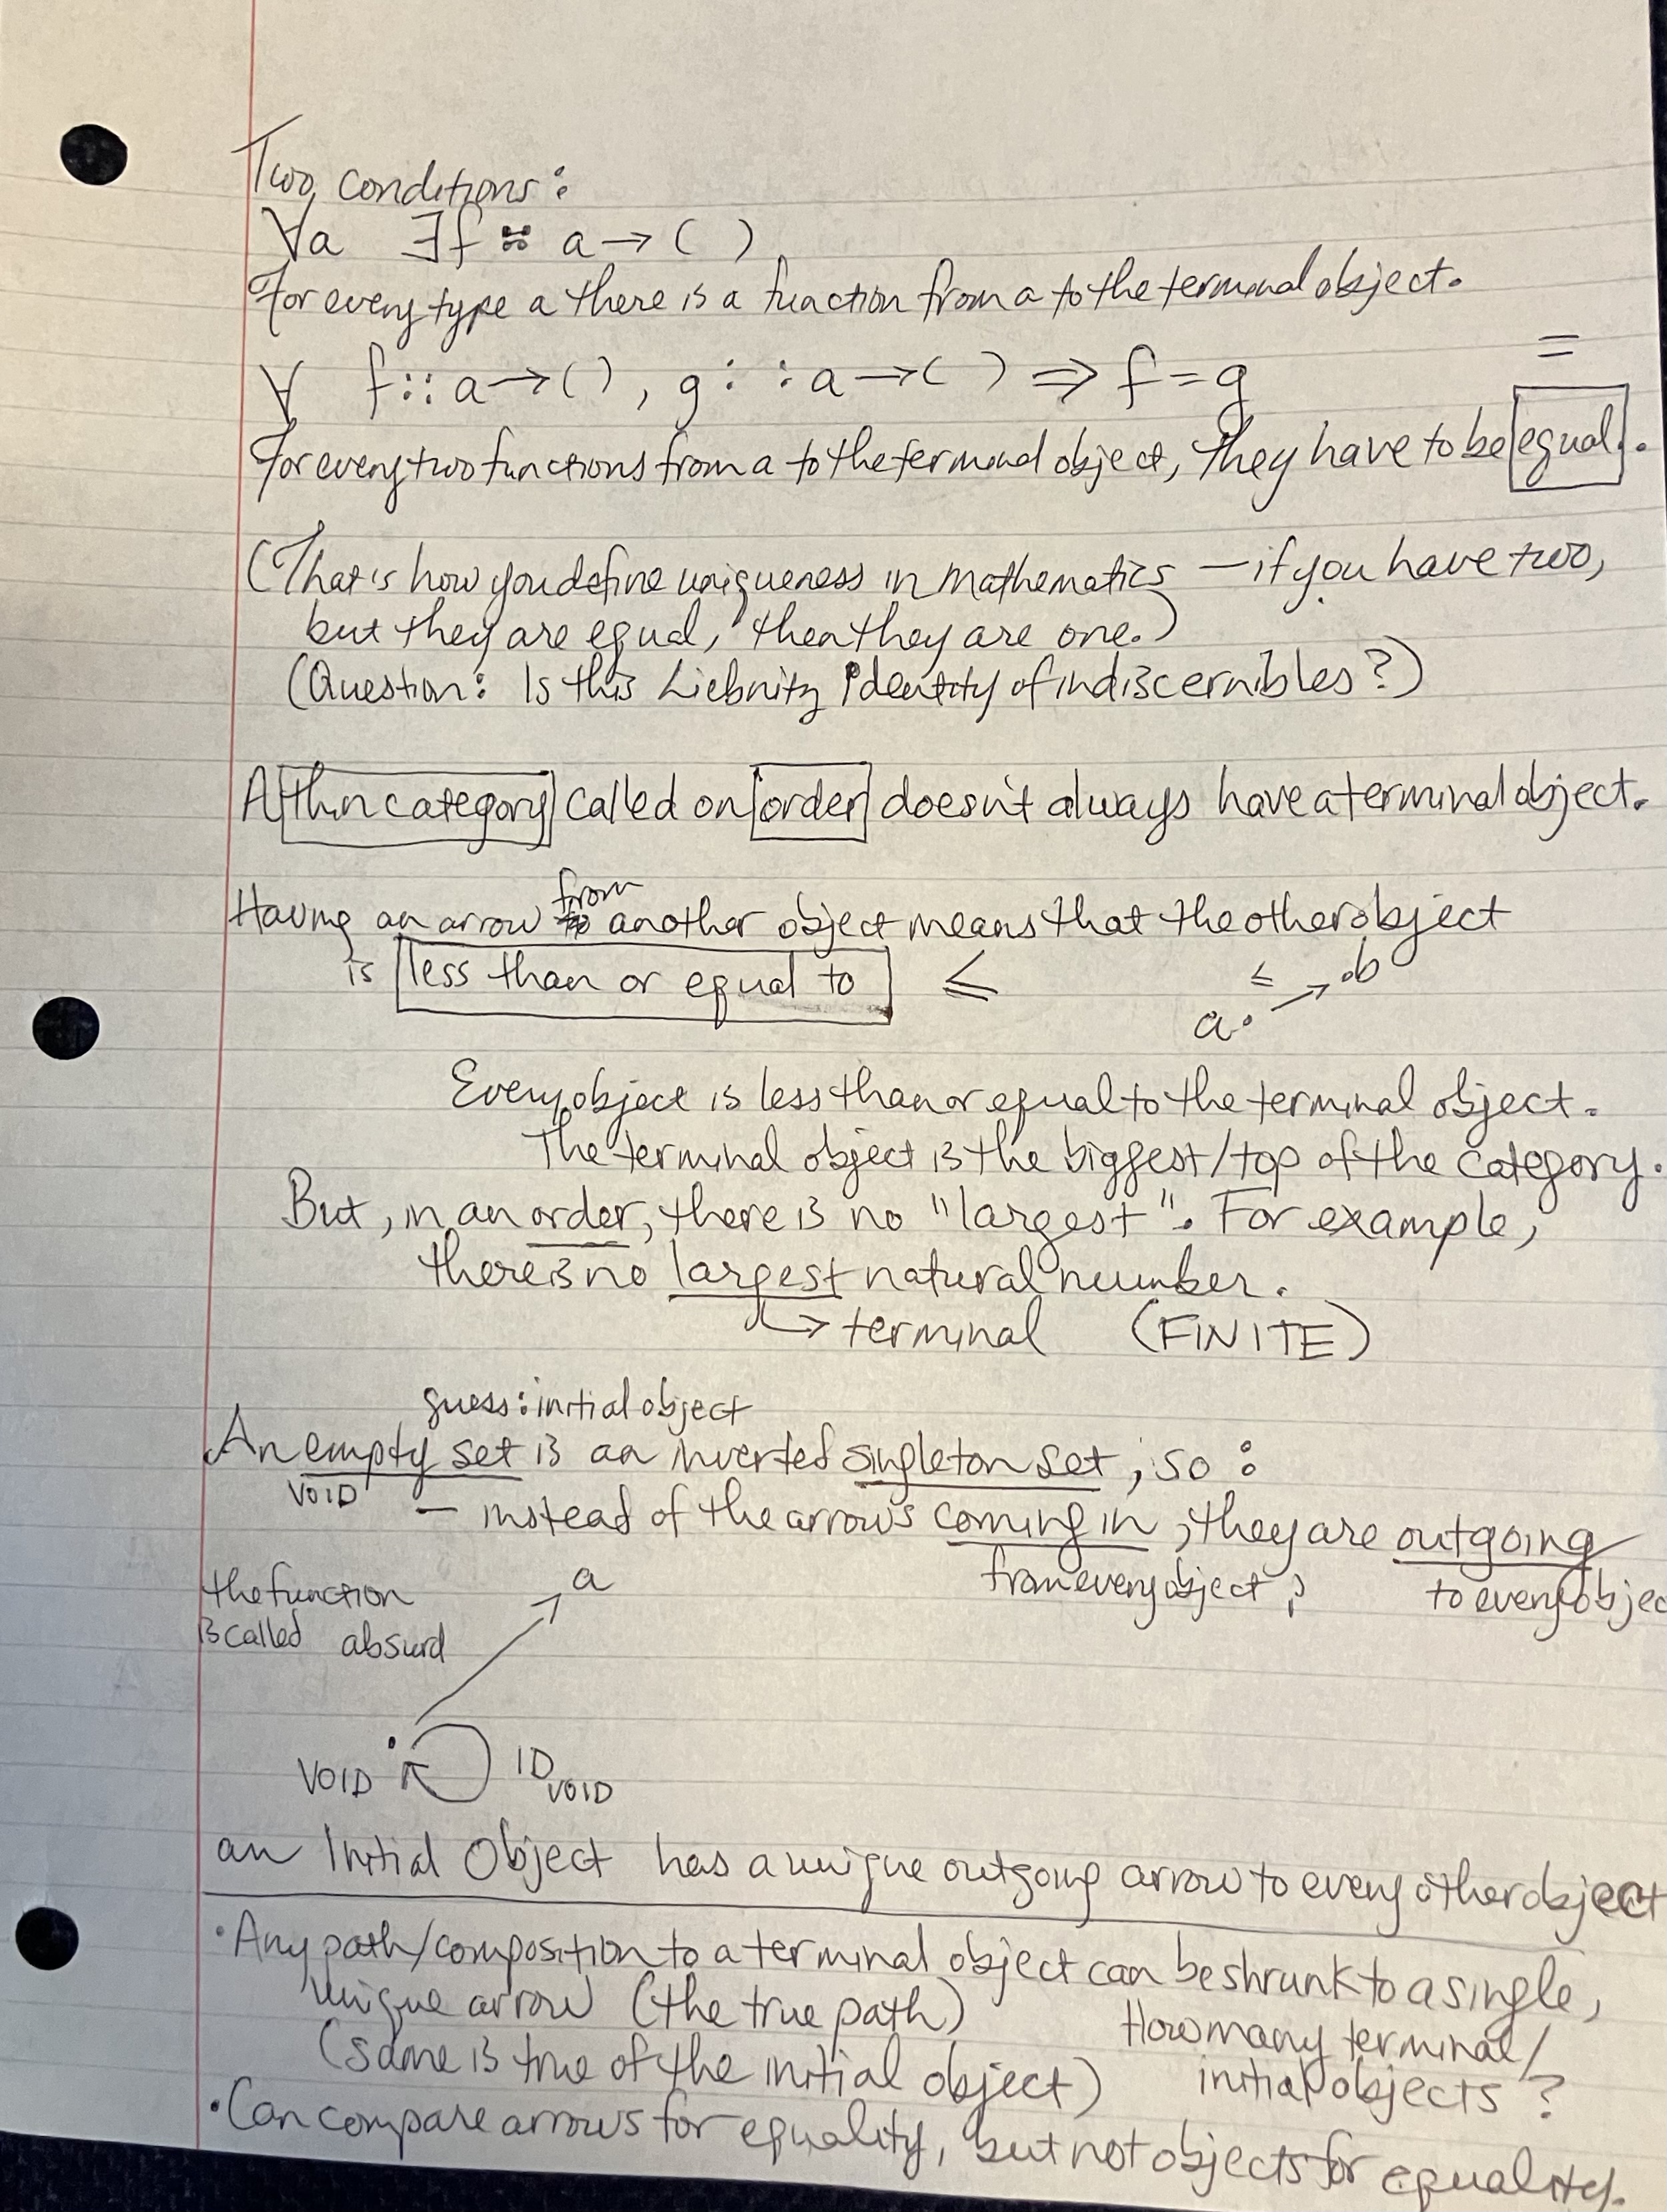 Two conditions:
∀a ∃f :: a → ( )
For every type a there is a function from a to the terminal object.
=
∀ f :: a → ( ), g : : a → ( ) ⇒ f = g
For every two functions from a to the terminal object, they have to be equal.
(That's how you define uniqueness in mathematics — if you have two,
but they are equal, then they are one.)
(Question: Is this Liebnitz Identity of indiscernibles?)
A thin category called on order doesn't always have a terminal object.
from
Having an arrow to another object means that the other object
is less than or equal to ≤
≤ .b
a.
Every object is less than or equal to the terminal object.
The terminal object is the biggest/top of the category.
But, in an order, there is no "largest". For example,
there is no largest natural number.
→ terminal (FINITE)
guess: initial object
An empty set is an inverted singleton set, so :
VOID
– instead of the arrows coming in, they are outgoing
from every object, to every objec
the function
is called absurd
a
VOID ID VOID
an Initial Object has a unique outgoing arrow to every other object
• Any path/composition to a terminal object can be shrunk to a single,
unique arrow (the true path)
(same is true of the initial object)
How many terminal/
initial objects?
• Can compare arrows for equality, but not objects for equality.